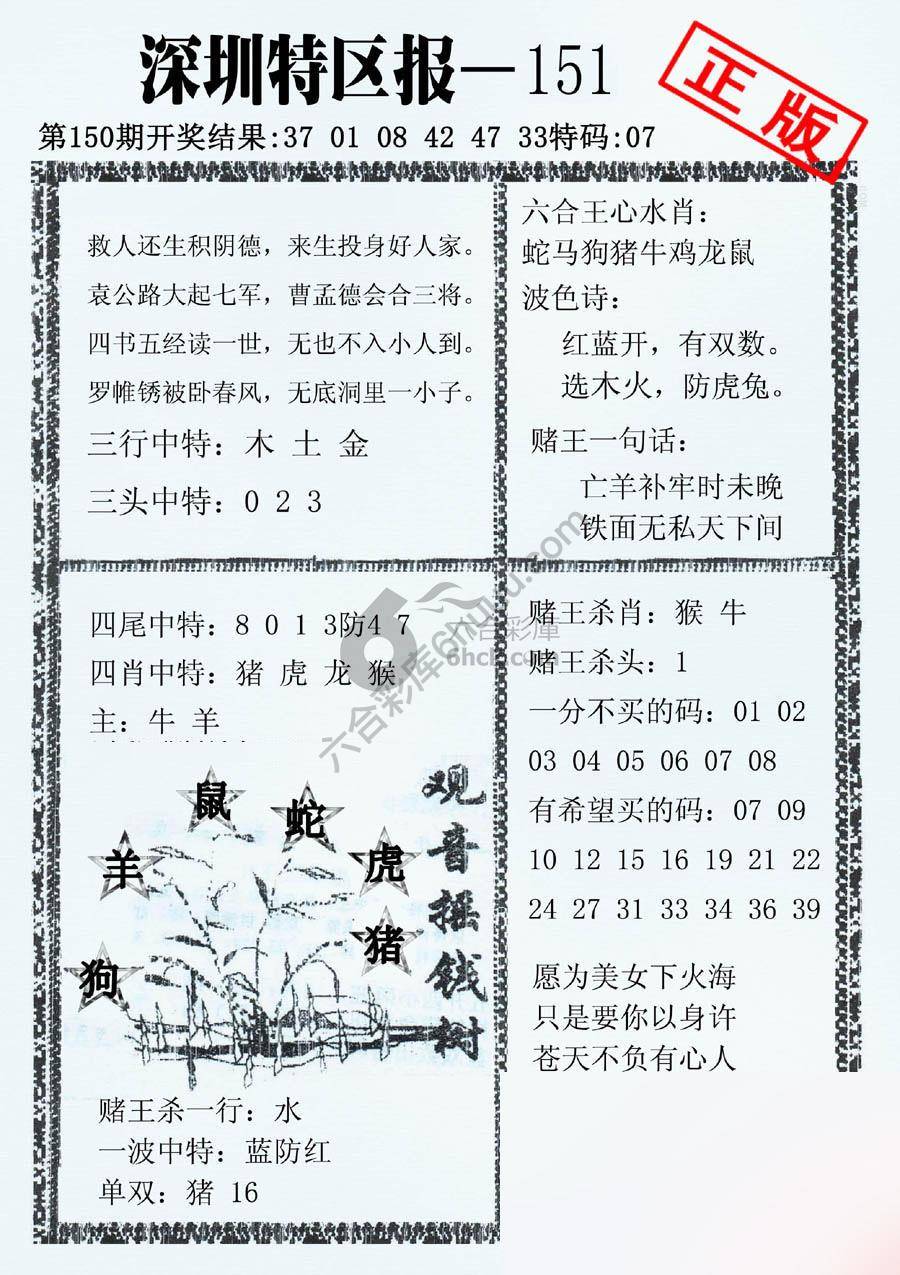 深圳特区报—151
正版
第150期开奖结果:37 01 08 42 47 33特码:07
救人还生积阴德，来生投身好人家。
袁公路大起七军，曹孟德会合三将。
四书五经读一世，无也不入小人到。
罗帷锈被卧春风，无底洞里一小子。
三行中特：木 土 金
三头中特：0 2 3
六合王心水肖：
蛇马狗猪牛鸡龙鼠
波色诗：
红蓝开，有双数。
选木火，防虎兔。
赌王一句话：
亡羊补牢时未晚
铁面无私天下间
四尾中特：8 0 1 3防4 7
四肖中特：猪 虎 龙 猴
主：牛 羊
观音摇钱树
鼠
蛇
羊
虎
猪
狗
赌王杀一行：水
一波中特：蓝防红
单双：猪 16
赌王杀肖：猴 牛
赌王杀头：1
一分不买的码：01 02
03 04 05 06 07 08
有希望买的码：07 09
10 12 15 16 19 21 22
24 27 31 33 34 36 39
愿为美女下火海
只是要你以身许
苍天不负有心人
六合彩库
六合彩库6htuku.com